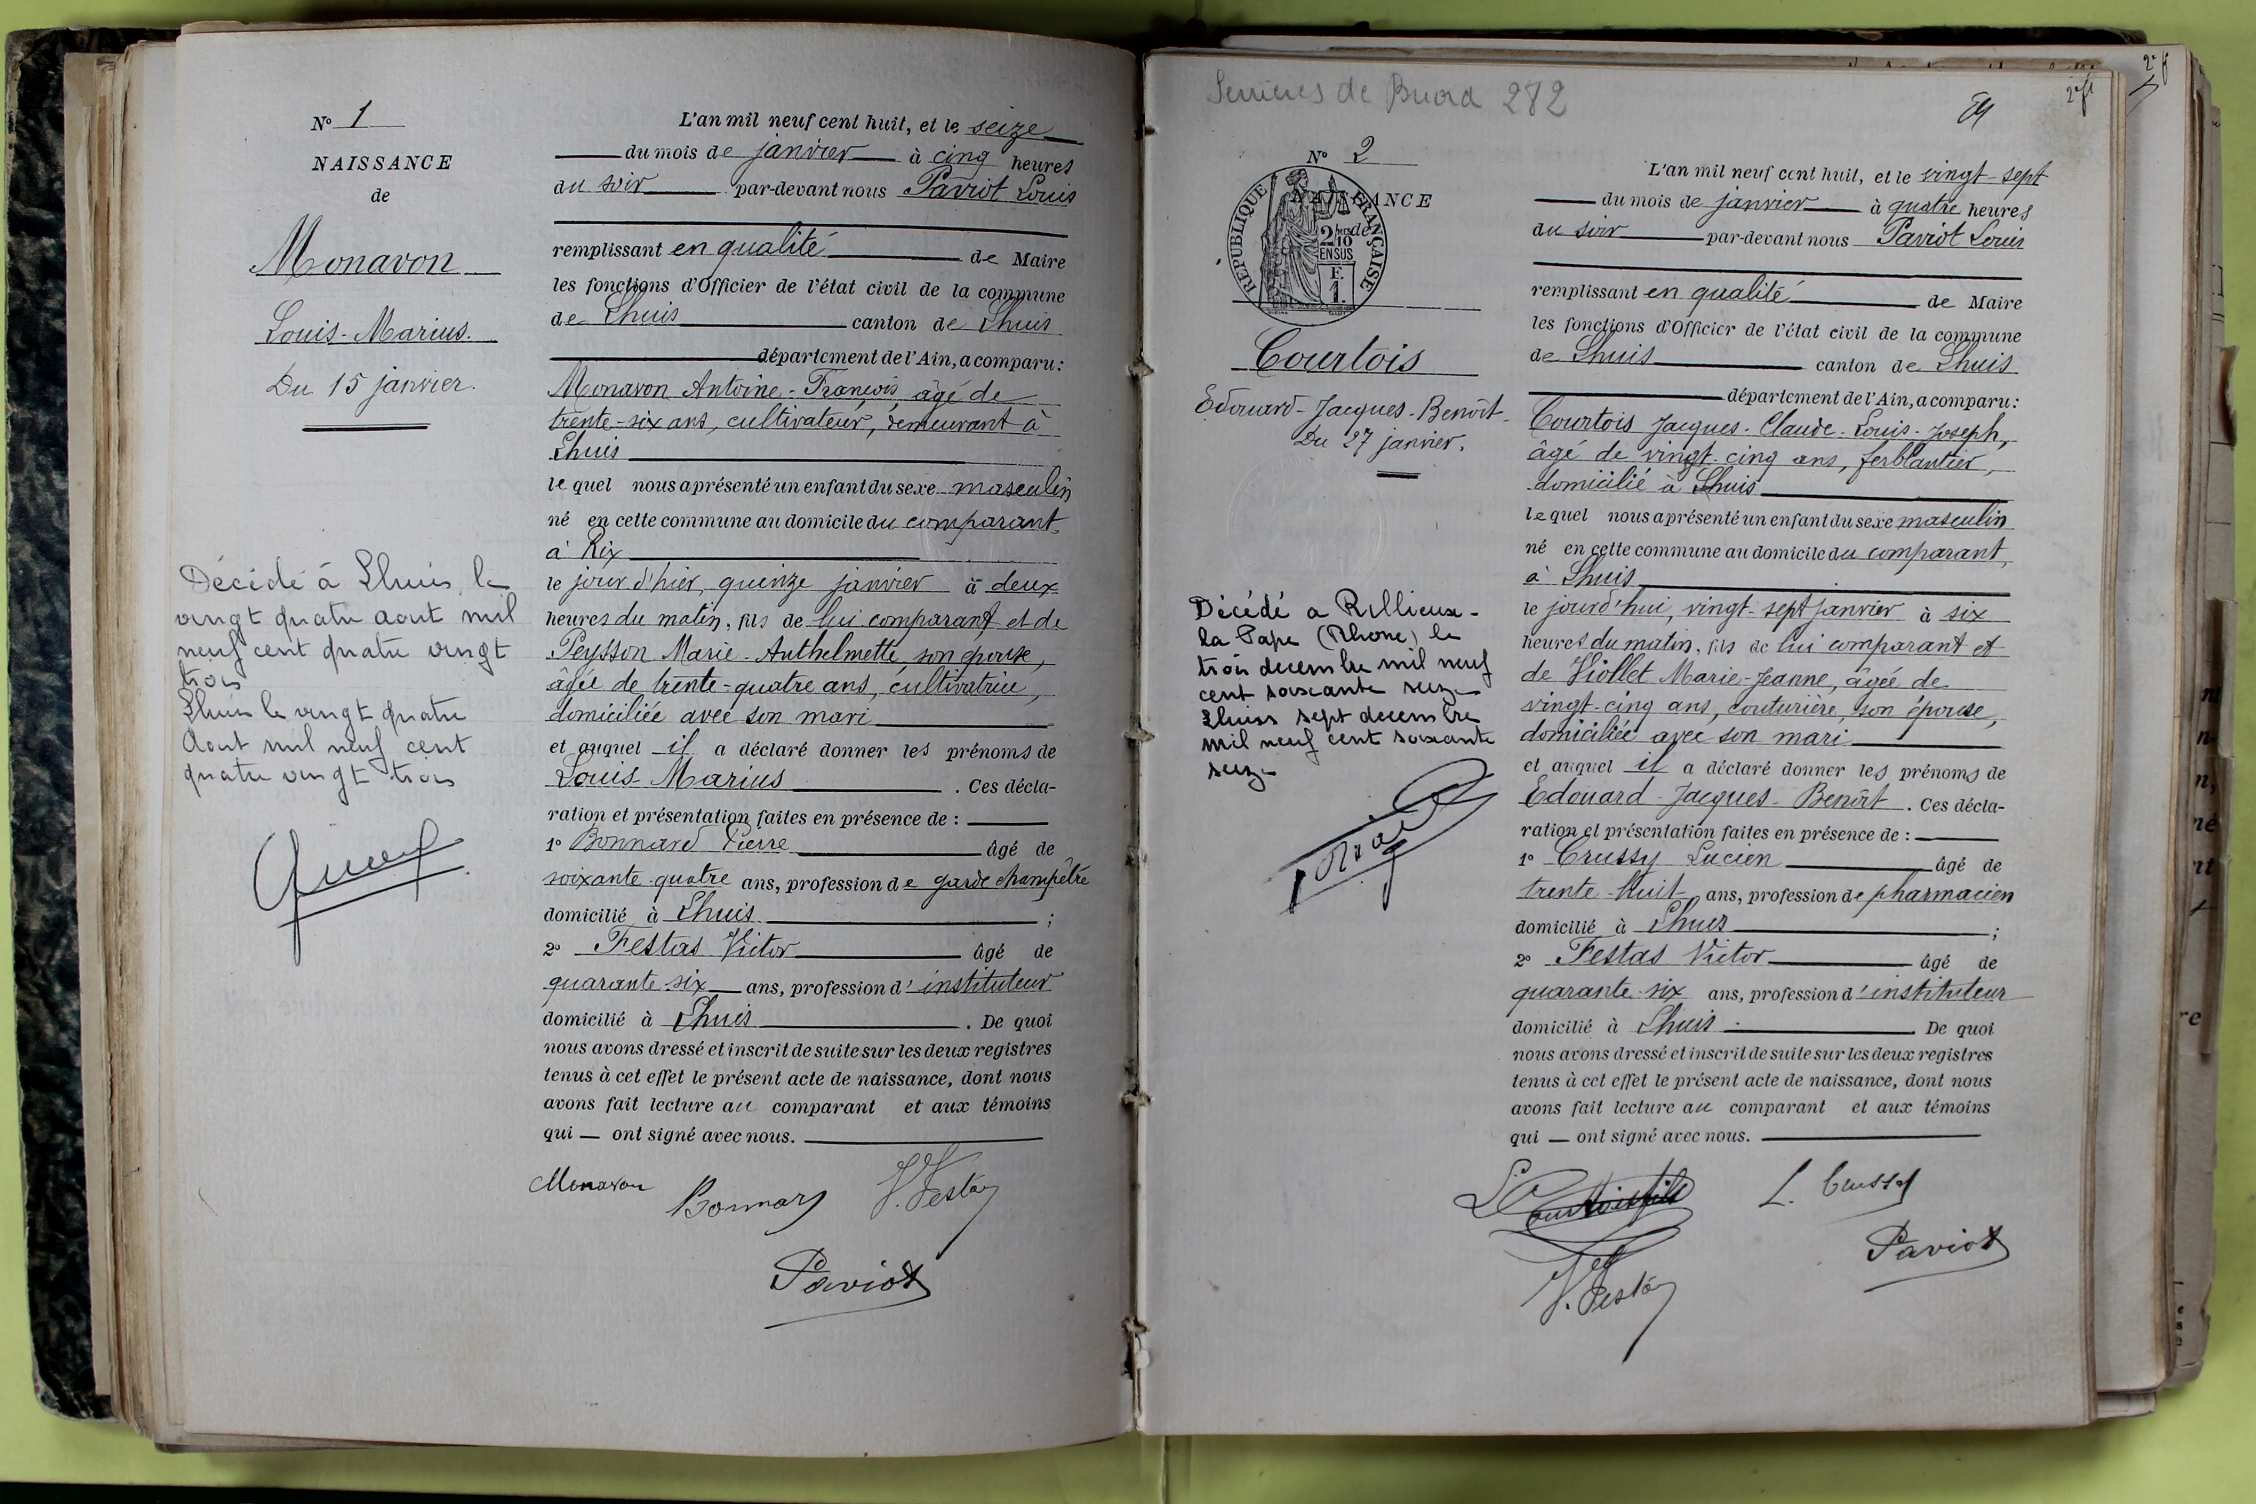 N° 1
NAISSANCE
de
Monavon
Louis-Marius.
Du 15 janvier.
Décédé à Lhuis le
vingt quatre aout mil
neuf cent quatre vingt
trois
Lhuis le vingt quatre
Aout mil neuf cent
quatre vingt trois
L'an mil neuf cent huit, et le seize
du mois de janvier à cinq heures
du soir par-devant nous Paviot Louis
remplissant en qualité de Maire
les fonctions d'Officier de l'état civil de la commune
de Lhuis canton de Lhuis
département de l'Ain, a comparu:
Monavon Antoine-François, âgé de
trente-six ans, cultivateur, demeurant à
Lhuis
lequel nous a présenté un enfant du sexe masculin
né en cette commune au domicile du comparant
à Rix
le jour d'hier, quinze janvier à deux
heures du matin, fils de lui comparant et de
Peysson Marie-Anthelmette, son épouse,
âgée de trente-quatre ans, cultivatrice,
domiciliée avec son mari
et auquel il a déclaré donner les prénoms de
Louis-Marius. Ces décla-
ration et présentation faites en présence de :
1° Bonnard Pierre âgé de
soixante-quatre ans, profession de garde champêtre
domicilié à Lhuis ;
2° Festas Victor âgé de
quarante six ans, profession d'instituteur
domicilié à Lhuis. De quoi
nous avons dressé et inscrit de suite sur les deux registres
tenus à cet effet le présent acte de naissance, dont nous
avons fait lecture au comparant et aux témoins
qui — ont signé avec nous.
Monavon Bonnard V. Festas
Paviot
Serrières de Briord 282
2e fl
N° 2
NAISSANCE
de
REPUBLIQUE FRANÇAISE
2/10 EN SUS
F.
1.
Courtois
Edouard-Jacques-Benoît
Du 27 janvier.
Décédé a Rillieux-
la Pape (Rhone) le
trois decembre mil neuf
cent soixante seize
Lhuis sept decembre
mil neuf cent soixante
seize
L'an mil neuf cent huit, et le vingt-sept
du mois de janvier à quatre heures
du soir par-devant nous Paviot Louis
remplissant en qualité de Maire
les fonctions d'Officier de l'état civil de la commune
de Lhuis canton de Lhuis
département de l'Ain, a comparu:
Courtois Jacques-Claude-Louis-Joseph,
âgé de vingt-cinq ans, ferblantier,
domicilié à Lhuis
lequel nous a présenté un enfant du sexe masculin
né en cette commune au domicile du comparant,
à Lhuis
le jourd'hui, vingt-sept janvier à six
heures du matin, fils de lui comparant et
de Viollet Marie-Jeanne, âgée de
vingt-cinq ans, couturière, son épouse,
domiciliée avec son mari
et auquel il a déclaré donner les prénoms de
Edouard-Jacques-Benoît. Ces décla-
ration et présentation faites en présence de :
1° Crussy Lucien âgé de
trente-huit ans, profession de pharmacien
domicilié à Lhuis ;
2° Festas Victor âgé de
quarante-six ans, profession d'instituteur
domicilié à Lhuis. De quoi
nous avons dressé et inscrit de suite sur les deux registres
tenus à cet effet le présent acte de naissance, dont nous
avons fait lecture au comparant et aux témoins
qui — ont signé avec nous.
L. Crussy
V. Festas
Paviot